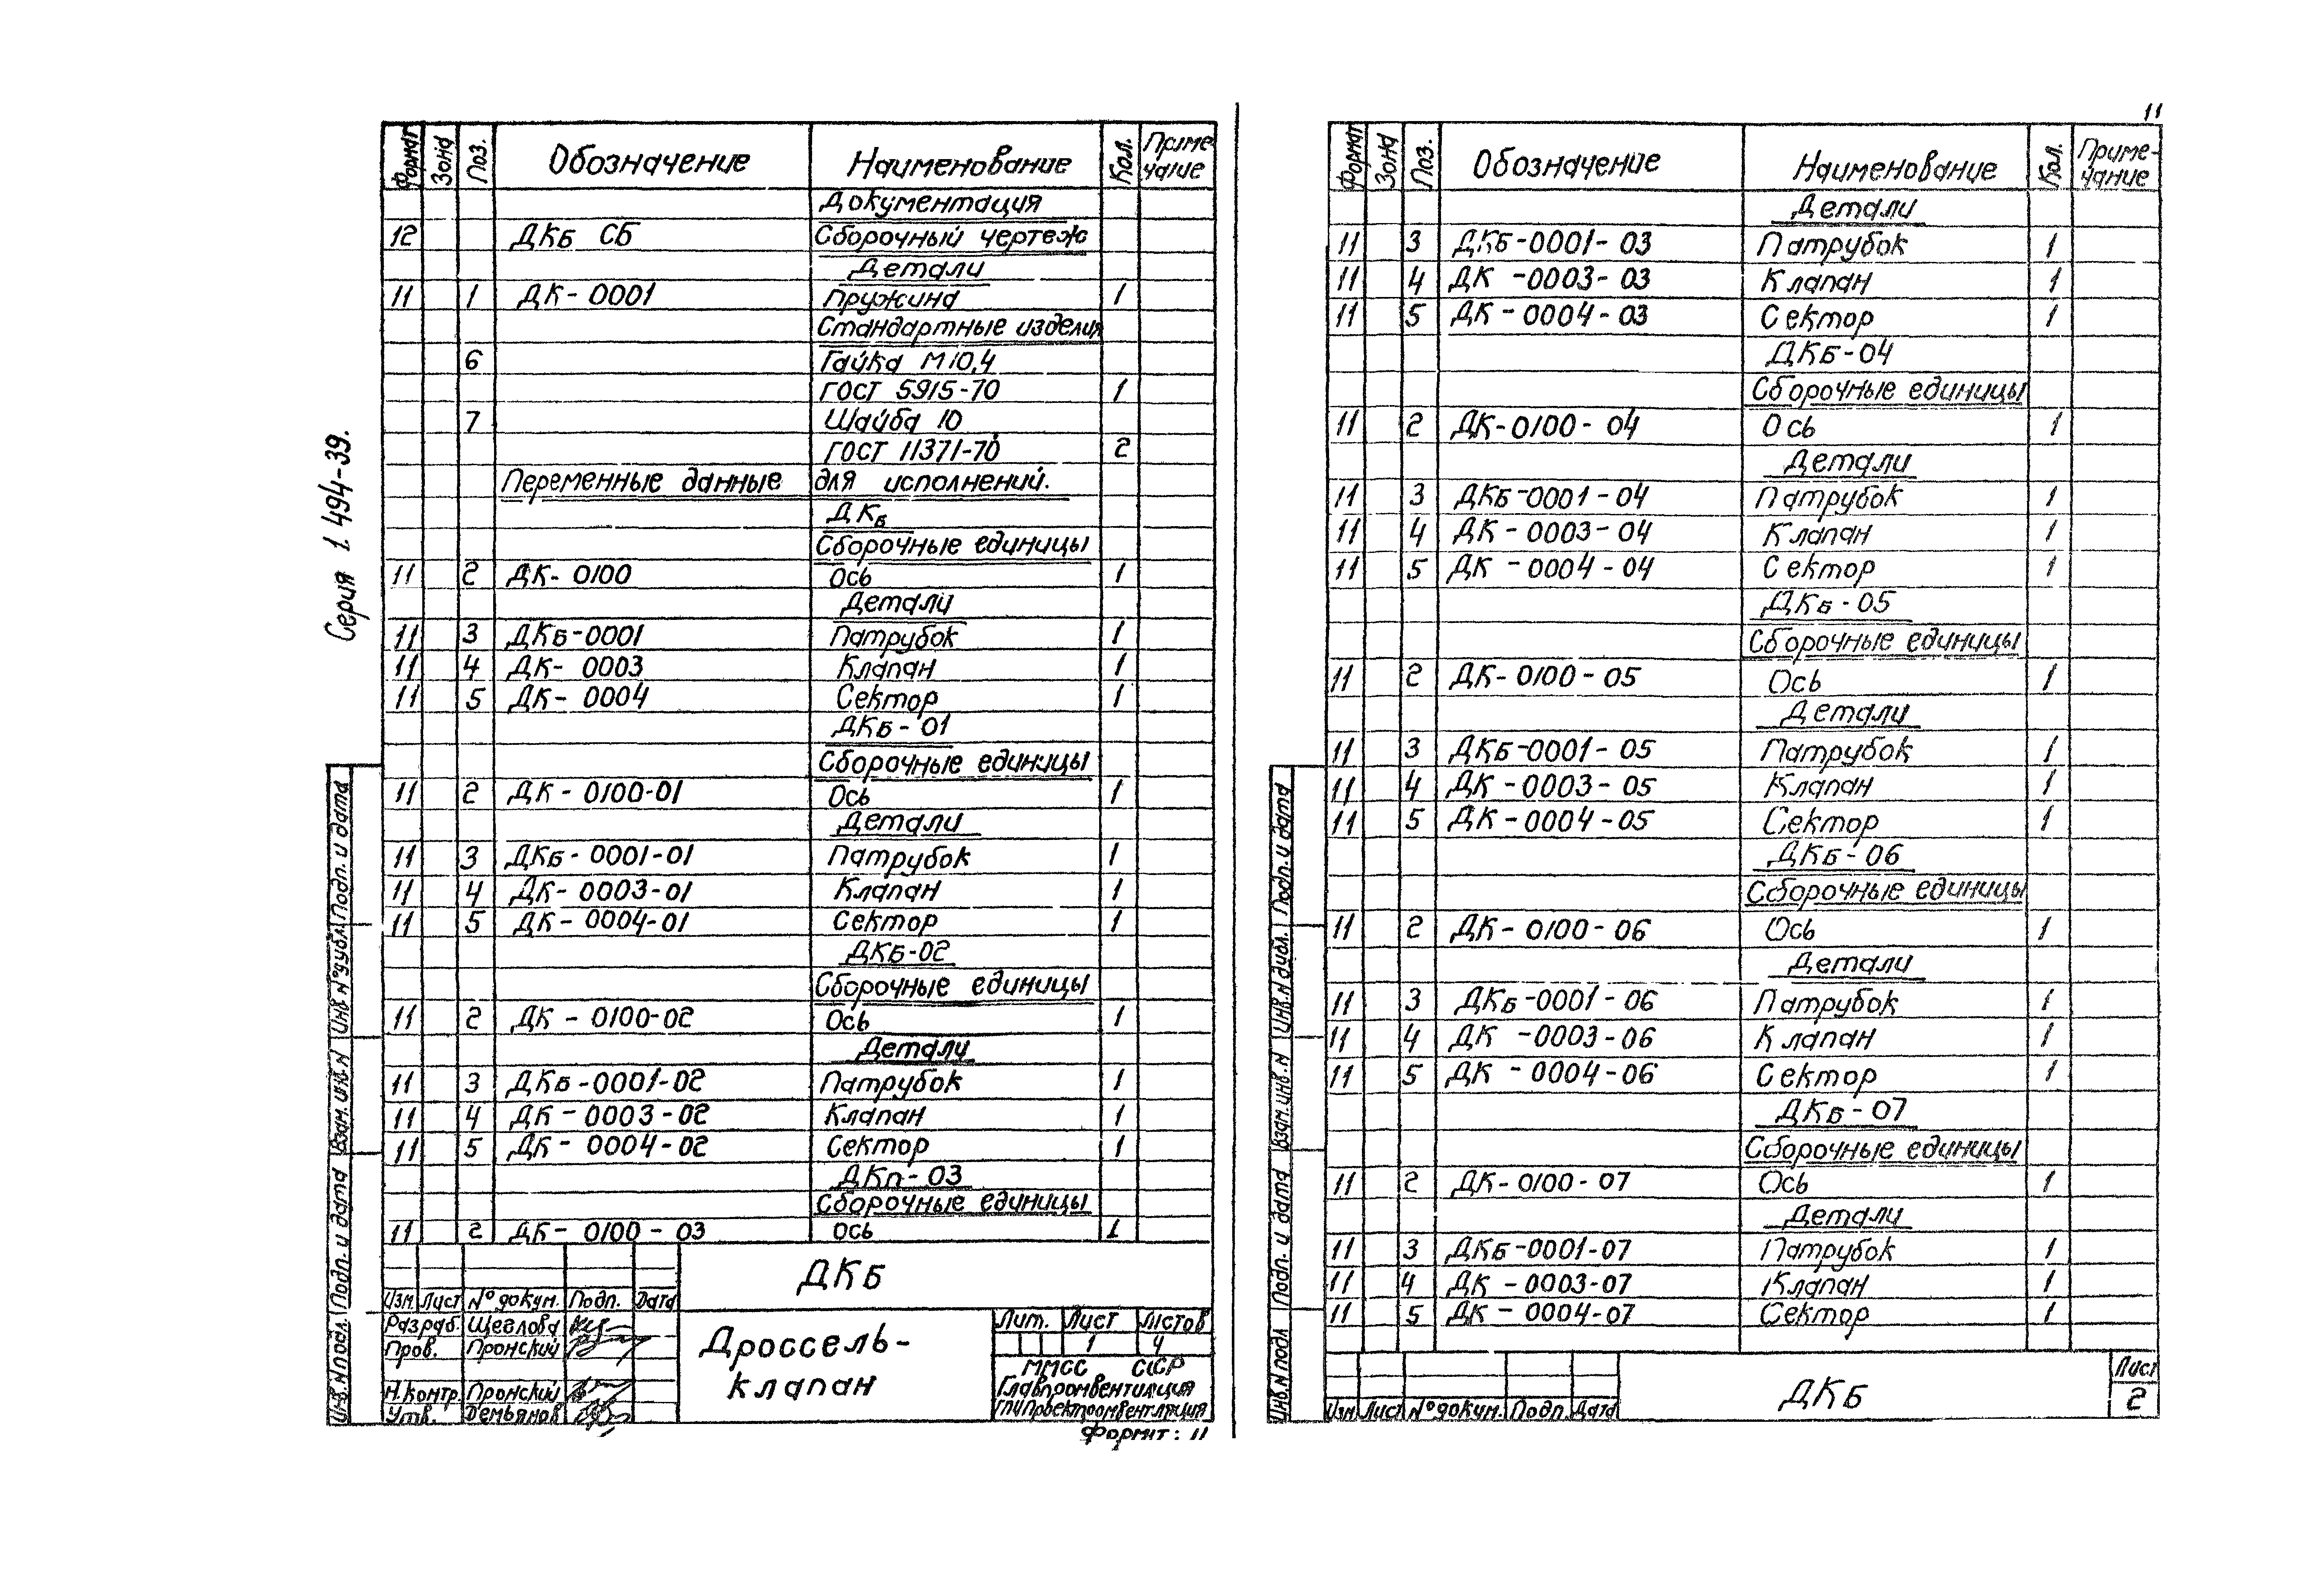 11
Серия 1.494-39.
Формат Зона Поз. Обозначение Наименование Кол. Примечание
Документация
12 ДКБ СБ Сборочный чертеж
Детали
11 1 ДК-0001 Пружина 1
Стандартные изделия
6 Гайка М10,4
ГОСТ 5915-70 1
7 Шайба 10
ГОСТ 11371-70 2
Переменные данные для исполнений.
ДКБ
Сборочные единицы
11 2 ДК-0100 Ось 1
Детали
11 3 ДКБ-0001 Патрубок 1
11 4 ДК-0003 Клапан 1
11 5 ДК-0004 Сектор 1
ДКБ-01
Сборочные единицы
11 2 ДК-0100-01 Ось 1
Детали
11 3 ДКБ-0001-01 Патрубок 1
11 4 ДК-0003-01 Клапан 1
11 5 ДК-0004-01 Сектор 1
ДКБ-02
Сборочные единицы
11 2 ДК-0100-02 Ось 1
Детали
11 3 ДКБ-0001-02 Патрубок 1
11 4 ДК-0003-02 Клапан 1
11 5 ДК-0004-02 Сектор 1
ДКп-03
Сборочные единицы
11 2 ДК-0100-03 Ось 1
Инв.N подл. Подп. и дата Взам.инв.N Инв N°дубл. Подп. и дата
Изм. Лист N°докум. Подп. Дата
Разраб. Щеглова
Пров. Пронский
Н.контр. Пронский
Утв. Демьянов
ДКБ
Дроссель-
клапан
Лит. Лист Листов
1 4
ММСС СССР
Главпромвентиляция
ГПИ Проектпромвентиляция
Формат: 11
Формат Зона Поз. Обозначение Наименование Кол. Примечание
Детали
11 3 ДКБ-0001-03 Патрубок 1
11 4 ДК-0003-03 Клапан 1
11 5 ДК-0004-03 Сектор 1
ДКБ-04
Сборочные единицы
11 2 ДК-0100-04 Ось 1
Детали
11 3 ДКБ-0001-04 Патрубок 1
11 4 ДК-0003-04 Клапан 1
11 5 ДК-0004-04 Сектор 1
ДКБ-05
Сборочные единицы
11 2 ДК-0100-05 Ось 1
Детали
11 3 ДКБ-0001-05 Патрубок 1
11 4 ДК-0003-05 Клапан 1
11 5 ДК-0004-05 Сектор 1
ДКБ-06
Сборочные единицы
11 2 ДК-0100-06 Ось 1
Детали
11 3 ДКБ-0001-06 Патрубок 1
11 4 ДК-0003-06 Клапан 1
11 5 ДК-0004-06 Сектор 1
ДКБ-07
Сборочные единицы
11 2 ДК-0100-07 Ось 1
Детали
11 3 ДКБ-0001-07 Патрубок 1
11 4 ДК-0003-07 Клапан 1
11 5 ДК-0004-07 Сектор 1
Инв.N подл Подп. и дата Взам.инв.N Инв.N дубл. Подп. и дата
Изм Лист N°докум. Подп. Дата
ДКБ
Лист
2